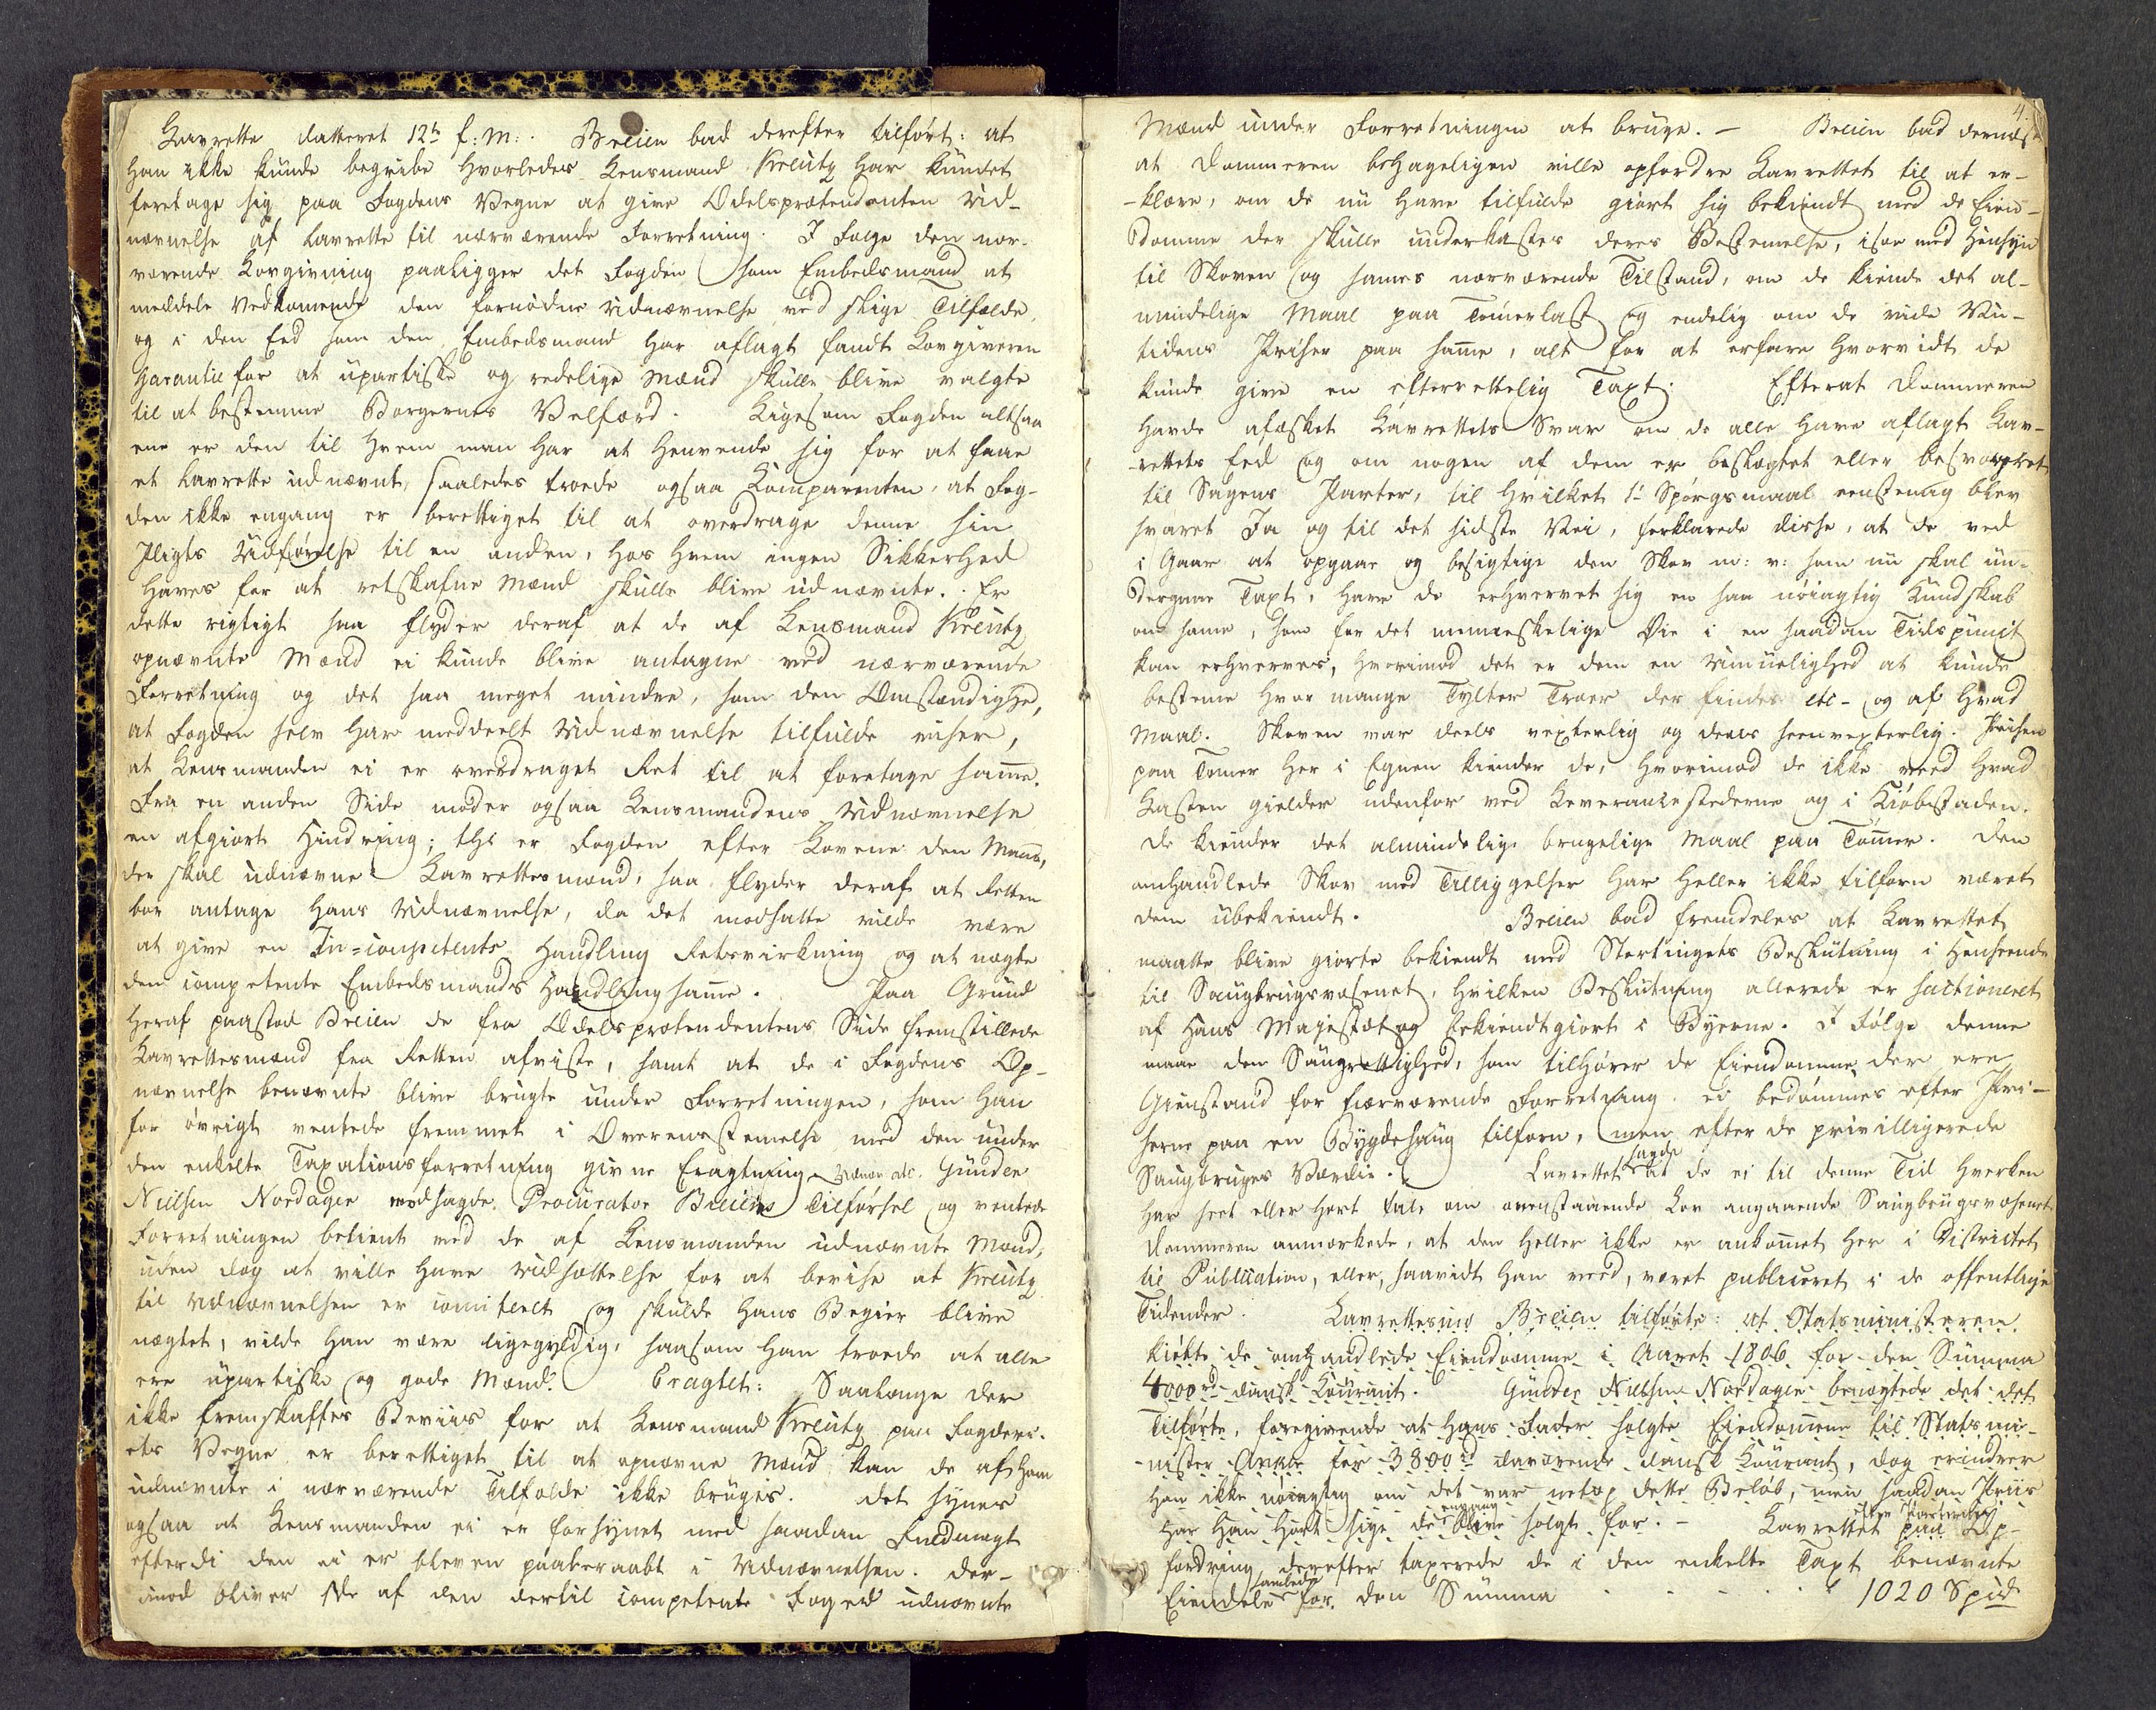 Lavrette datteret 12te f: M: Breien bad derefter tilført: at
han ikke kunde begribe hvorledes Lensmand Kreutz har kundet
foretage sig paa Fogdens Vegne at give Odelsprætendenten Ud-
nævnelse af Lavrette til nærværende Forretning. I Følge den nær-
værende Lovgivning paaligger det Fogden som Embedsmand at
meddele Vedkomende den fornødne Udnævnelse ved slige Tilfælde
og i den Eed som den Embedsmand har aflagt fandt Lovgiveren
Garantie for at upartiske og redelige Mænd skulle blive valgte
til at bestemme Borgernes Velfærd. Ligesom Fogden altsaa
ene er den til hvem man har at henvende sig for at faae
et Lavrette udnævnt, saaledes troede ogsaa Komparenten, at Fog-
den ikke engang er berettiget til at overdrage denne sin
Pligts Udførelse til en anden, hos hvem ingen Sikkerhed
haves for at retskafne Mænd skulle blive udnævnte. Er
dette rigtigt saa flyder deraf at de af Lensmand Kreutz
opnævnte Mænd ei kunde blive antagne ved nærværende
Forretning og det saa meget mindre, som den Omstændighed,
at Fogden selv har meddeelt Udnævnelse tilfulde viser,
at Lensmanden ei er overdraget Ret til at foretage same.
Fra en anden Side møder ogsaa Lensmandens Udnævnelse
en afgiort Hindring; thi er Fogden efter Lovene den Mand,
der skal udnævne Lavrettesmænd, saa flyder deraf at Retten
bør antage hans Udnævnelse, da det modsatte vilde være
at give en In=competents Handling Retsvirkning og at nægte
den competente Embedsmands Handling same. Paa Grund
heraf paastod Breien de fra Odelsprætendentens Side fremstillede
Lavrettesmænd fra Retten afviste, samt at de i Fogdens Op-
nævnelse benævnte blive brugte under Forretningen, som han
for øvrigt ventede fremmet i Overensstemelse med den under
den enkelte Taxationsforretning givne Eragtning. Gunder
Nielsen Nordagen modsagde Procurator Breiens Tilførsel og ventede
Forretningen betient med de af Lensmanden udnævnte Mænd,
uden dog at ville have Udsættelse for at bevise at Kreutz
til Udnævnelsen er comiteret og skulde hans Begier blive
nægtet, vilde han være ligegyldig, saasom han troede at alle
ere upartiske og gode Mænd. Eragtet: Saalænge der
ikke fremskaffes Beviis for at Lensmand Kreutz paa Fogderi-
ets Vegne er berettiget til at opnævne Mænd, kan de af ham
udnævnte i nærværende Tilfælde ikke bruges. Det synes
ogsaa at Lensmanden ei er forsynet med saadan Fuldmagt
efterdi den ei er bleven paaberaabt i Udnævnelsen. Der-
imod bliver de af den dertil competente Foged udnævnte
4.
Mænd under Forretningen at bruge. – Breien bad dernæst
at Dommeren behageligen ville opfordre Lavrettet til at er-
-klære, om de nu have tilfulde giort sig bekiendt med de Eien-
domme der skulle underkastes deres Bestemelse, især med Hensyn
til Skoven og sames nærværende Tilstand, om de kiende det al-
mindelige Maal paa Tømerlast og endelig om de vide Nu-
tidens Priser paa same, alt for at erfare hvorvidt de
kunde give en efterrettelig Taxt. Efterat Dommeren
havde afæsket Lavrettets Svar om de alle have aflagt Lav-
-rettets Eed og om nogen af dem er beslægtet eller besvogret
til Sagens Parter, til hvilket 1te Spørgsmaal eenstemig blev
svaret Ja og til det sidste Nei, forklarede disse, at de ved
i Gaar at opgaae og besigtige den Skov m: v: som nu skal un-
dergaae Taxt, have de erhvervet sig en saa nøiagtig Kundskab
om same, som for det menneskelige Øie i en saadan Tidspunct
kan erhverves, hvorimod det er dem en Umuelighed at kunde
besteme hvor mange Tylter Træer der findes etc - og af hvad
Maal. Skoven var deels vexterlig og deels seenvexterlig. Prisen
paa Tømer her i Egnen kiender de, hvorimod de ikke veed hvad
Lasten gielder udenfor ved Leverancestederne og i Kiøbstaden.
De kiender det almindelige brugelige Maal paa Tømer. Den
omhandlede Skov med Tilliggelser har heller ikke tilforn været
dem ubekiendt. Breien bad fremdeles at Lavrettet
maatte blive giorte bekiendt med Stortingets Beslutning i Henseende
til Saugbrugsvæsenet, hvilken Beslutning allerede er sactioneret
af Hans Majestæt og bekiendtgiort i Byerne. I Følge denne
maae den Saugrettighed, som tilhører de Eiendomme der ere
Gienstand for nærværende Forretning ei bedømmes efter Pri-
serne paa en Bygdesaug tilforn, men efter de privilligerede
Saugbruges Værdie. Lavrettet sagde at de ei til denne Tid hverken
har seet eller hørt tale om ovenstaaende Lov angaaende Saugbrugsvæsenet
Dommeren anmærkede, at den heller ikke er ankomet her i Districtet
til Publication, eller, saavidt han veed, været publiceret i de offentlige
Tidender. Breien tilførte: at Statsministeren
kiøbte de omhandlede Eiendomme i Aaret 1806 for den Summa
4000rd dansk Courant. Gunder Nielsen Nordagen benægtede det det
Tilførte, foregivende at hans Fader solgte Eiendomene til Statsmi-
-nister Anker for 3800rd daværende dansk Courant, dog erindrer
han ikke nøiagtig om det var netop dette Beløb, men saadan Priis
har han hørt sige de engang blive solgt for. – Lavrettet paa Op-
fordring derefter taxerede de i den enkelte Taxt benævnte
Eiendele samlede for den Summa . . . . . 1020 Spd